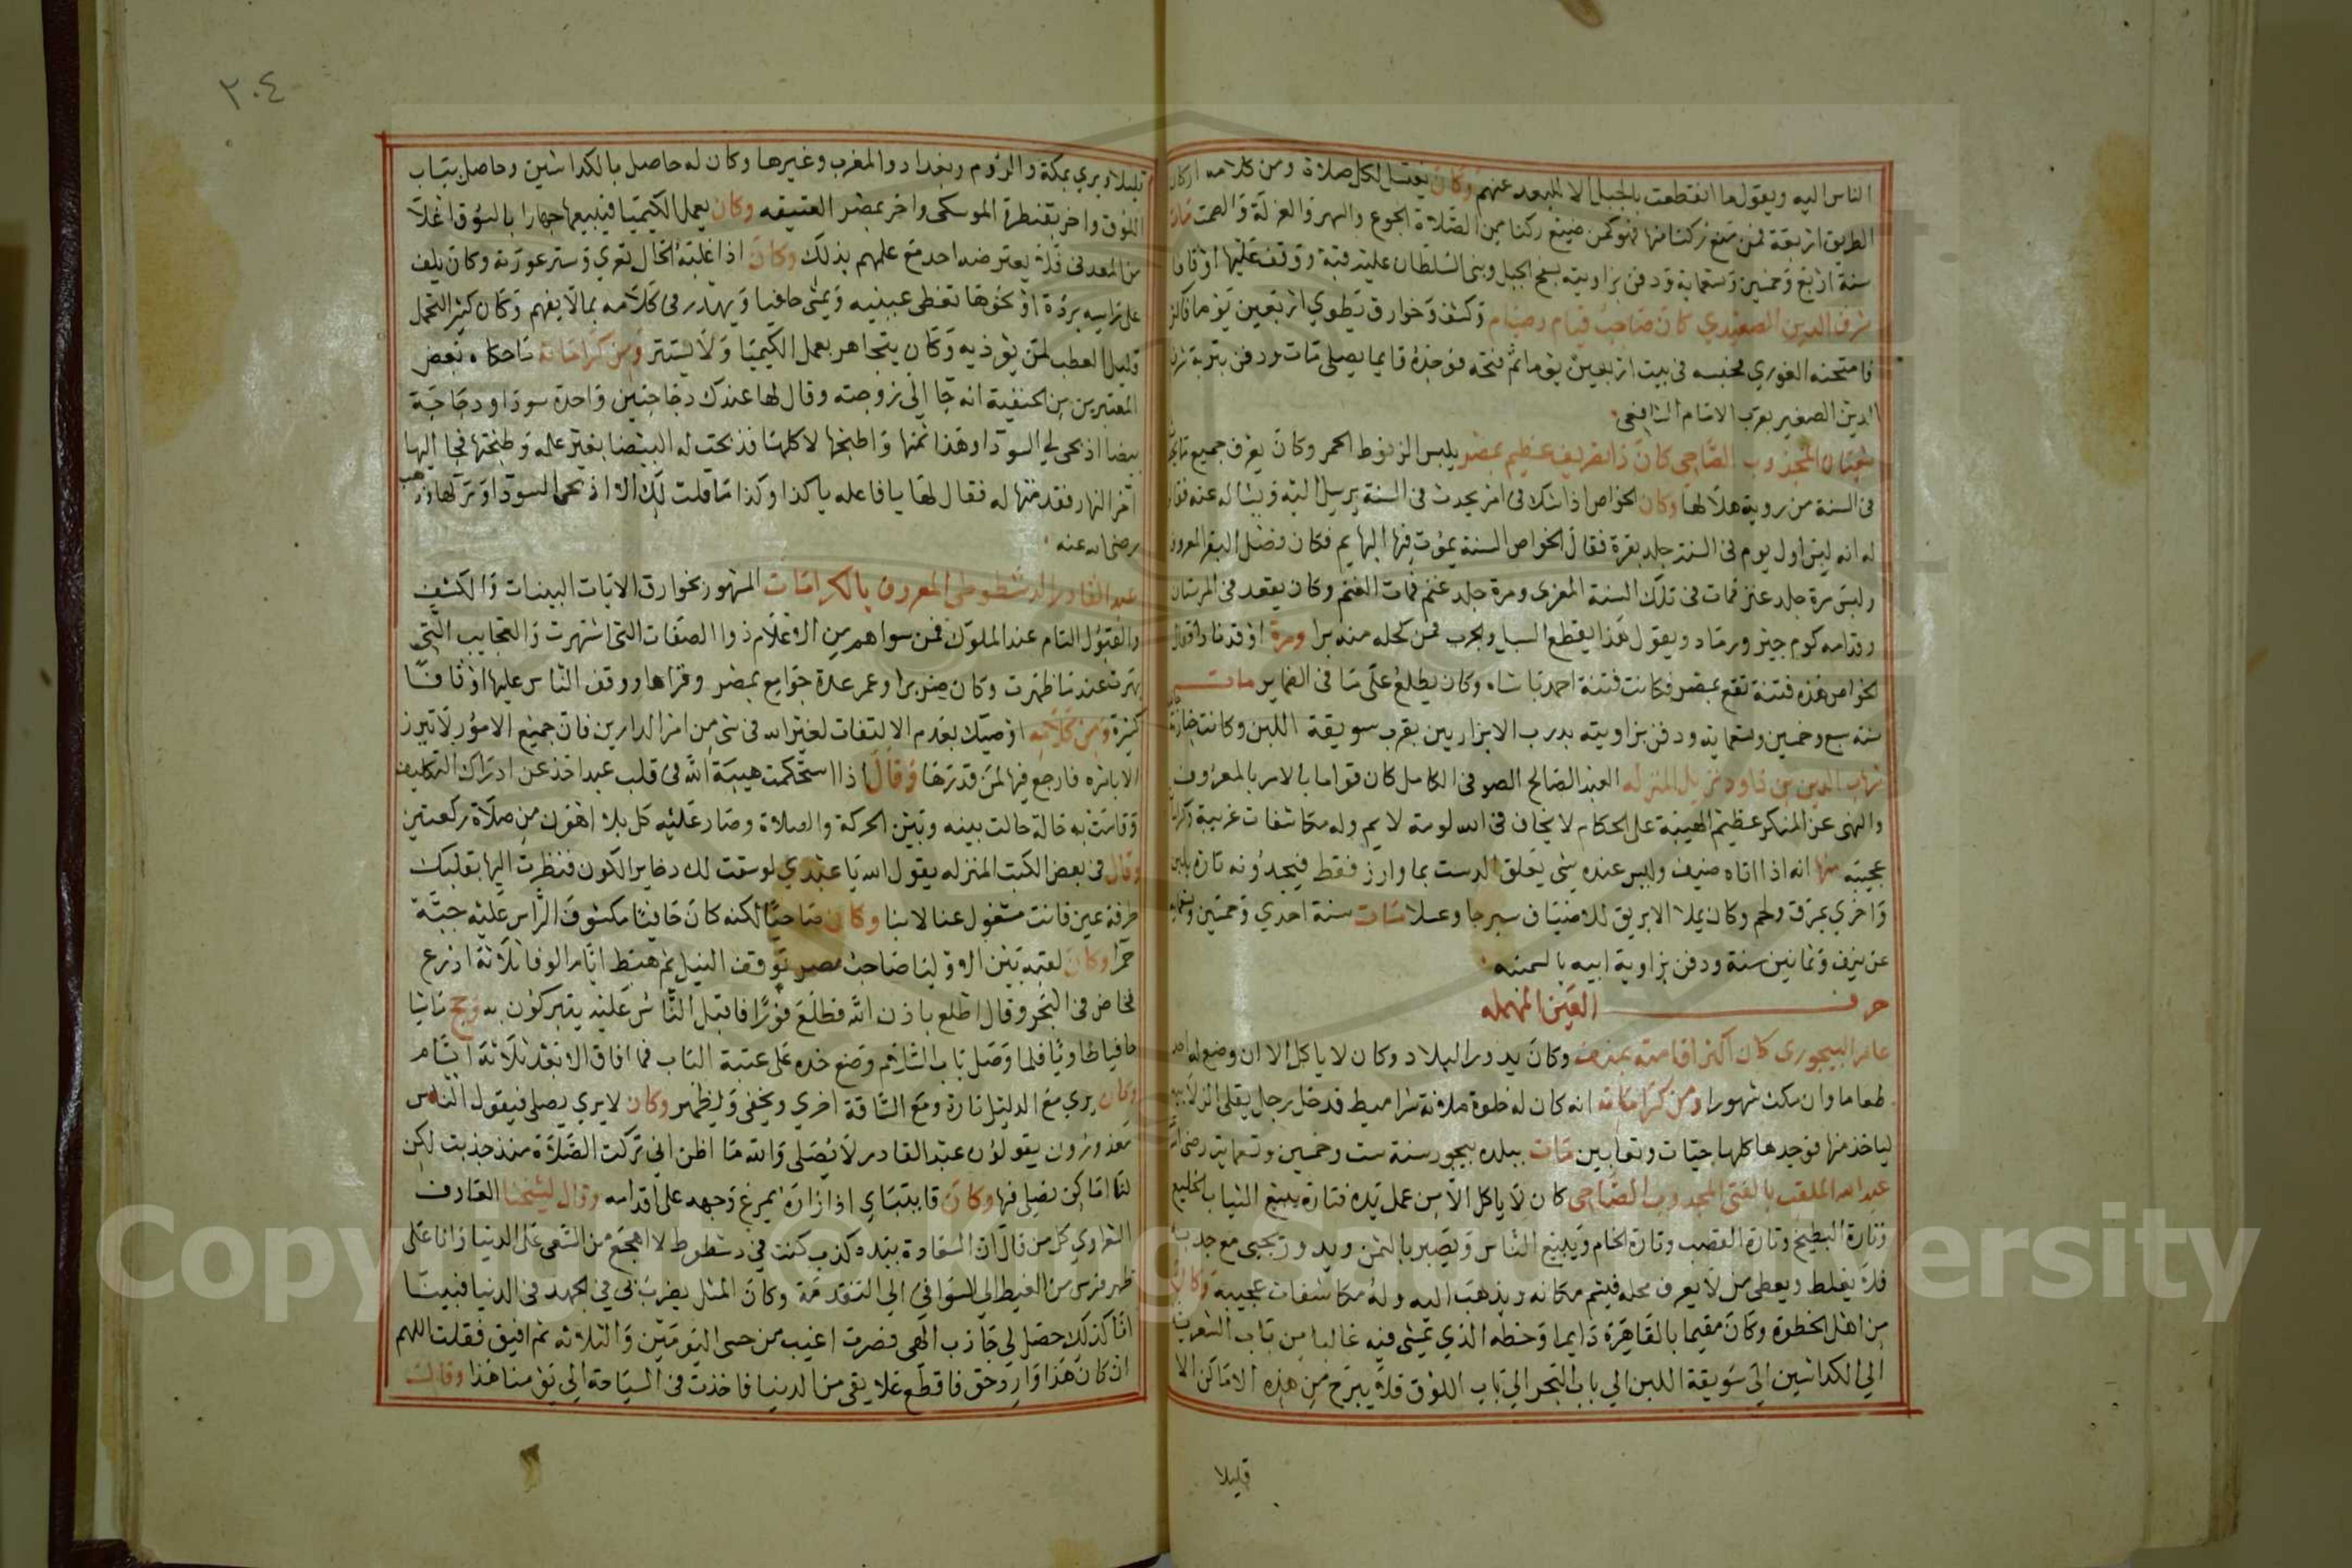 الناس اليه ويقول ما انقطعت بالجبل الا للبعد عنهم وكان يغتسل لكل صلاة ومن كلامه اركان
الطريق اربعة فمن ضيع ركنا منها فهو كمن ضيع ركنا من الصلاة الجوع والسهر والعزلة والصمت مات
سنة اربع وخمسين وتسعماية ودفن بزاويته بسفح الجبل وبنى السلطان عليه قبة ووقف عليها اوقافا
شرف الدين الصعيدي كان صاحب قيام وصيام وكشف وخوارق يطوي اربعين يوما فاكثر
فامتحنه الغوري فحبسه في بيت اربعين يوما ثم فتحه فوجده قايما يصلي مات ودفن بتربة شرف
الدين الصغير بقرب الامام الشافعي
شعبان المجذوب الصاحى كان ذا تصريف عظيم بمصر يلبس الزنوط الحمر وكان يعرف جميع ما يقع
في السنة من روية هلالها وكان الخواص اذا شك في امر يحدث في السنة يرسل اليه ويساله عنه فقال
له انه لبس اول يوم في السنة جلد بقرة فقال الخواص السنة يموت فيها البهايم فكان فضل البقر
ولبس مرة جلد عنز فمات في تلك السنة المعزى ومرة جلد غنم فمات الغنم وكان يقعد في المرستان
وقدامه كوم جير ورماد ويقول هذا يقطع السبل والجرب فمن كحله منه برا ومرة اوقد نارا فقال
الخواص هذه فتنة تقع بمصر فكانت فتنة احمد باشاه وكان يطلع على ما في الضماير مات
سنة سبع وخمسين وتسعماية ودفن بزاويته بدرب الابزاريين بقرب سويقة اللبن وكانت جنازته
شهاب الدين بن داود نزيل المنزله العبد الصالح الصوفي الكامل كان قواما بالامر بالمعروف
والنهي عن المنكر عظيم الهيبة على الحكام لا يخاف في الله لومة لايم وله مكاشفات غريبة وكرامات
عجيبه منها انه اذا اتاه ضيف وليس عنده شي يعلق الدست بما وارز فقط فيجدونه تارة بلبن
واخري بمرق ولحم وكان يملا الابريق للاضياف سيرجا وعسلا مات سنة احدي وخمسين وتسعماية
عن نيف وثمانين سنة ودفن بزاوية ابيه بالسمنه
حرف العين المهمله
عامر البيجوري كان اكثر اقامته بمنوف وكان يدور البلاد وكان لا ياكل الا ان وضع له احد
طعاما وان مكث شهورا ومن كراماته انه كان له خلوة ملانة شراميط فدخل رجل يقلي الزلابيه
لياخذ منها فوجدها كلها حيات وتعابين مات ببلده بيجور سنة ست وخمسين وتسعماية رضي الله
عبد الله الملقب بالفتى المجدوب الصاحى كان لا ياكل الا من عمل يده فتارة يبيع الثياب بالخليع
وتارة البطيخ وتارة القصب وتارة الخام ويبيع الناس ويصبر بالثمن ويدور يجبي مع جدبه
فلا يغلط ويعطي من لا يعرف محله فيتم مكانه ويذهب اليه وله مكاشفات عجيبة وكان
من اهل الخطوة وكان مقيما بالقاهرة دايما وخطه الذي يمشي فيه غالبا من باب الشعرية
الي الكداشين الى سويقة اللبن الي باب البحر الي باب اللوق فلا يبرح من هذه الاماكن الا
قليلا
٢٠٤
قليلا ويري بمكة والروم وبغداد والمغرب وغيرها وكان له حاصل بالكداشين وحاصل بباب
اللوق واخر بقنطرة الموسكي واخر بمصر العتيقه وكان يعمل الكيميا فيبيعها جهارا بالسوق اغلا
من المعدني فلا يعترضه احد مع علمهم بذلك وكان اذا غلبه الحال تعري وستر عورته وكان يلف
على راسه بردة او نحوها تغطي عينيه ويمشي حافيا ويهدر في كلامه بما لا يفهم وكان كثير التحمل
قليل العطب لمن يوذيه وكان يتجاهر بعمل الكيميا ولا يستتر ومن كراماته ما حكاه بعض
المعتبرين من الحنفية انه جا الي زوجته وقال لها عندك دجاجتين واحدة سودا ودجاجة
بيضا اذبحي لي السودا وهذا ثمنها واطبخها لاكلها فذبحت له البيضا بغير علمه وطبختها فجا اليها
اخر النهار فقدمتها له فقال لها يا فاعله يا كذا وكذا ما قلت لك الا اذبحي السودا وتركها وذهب
رضي الله عنه
عبد القادر الدشطوطي المعروف بالكرامات المشهور بخوارق الايات البينات والكشف
والقبول التام عند الملوك فمن سواهم من الاعلام ذوا الصفات التي اشتهرت والعجايب التي
بهرت عندما ظهرت وكان ضريرا وعمر عدة جوامع بمصر وقراها ووقف الناس عليها اوقافا
كثيرة ومن كلامه اوصيك بعدم الالتفات لغير الله في شي من امر الدارين فان جميع الامور لا تبرز
الا بامره فارجع فيها لمن قدرها وقال اذا استحكمت هيبة الله في قلب عبد اخذ عن ادراك التكليف
وقامت به حالة حالت بينه وبين الحركة والصلاة وصار عليه كل بلا اهون من صلاة ركعتين
وقال في بعض الكتب المنزله يقول الله يا عبدي لو سقت لك دخاير الكون فنظرت اليها بقلبك
طرفة عين فانت مشغول عنا لا بنا وكان صاحيا لكنه كان حافيا مكشوف الراس عليه جبة
حمرا وكان لقبه بين الاوليا صاحب مصر توقف النيل ثم هبط ايام الوفا ثلاثة اذرع
فخاض في البحر وقال اطلع باذن الله فطلع فورا فاقبل الناس عليه يتبركون به وحج ماشيا
حافيا طاويا فلما وصل باب السلام وضع خده على عتبة الباب فما افاق الا بعد ثلاثة ايام
وكان يري مع الدليل تارة ومع الساقة اخري ويخفي ويظهر وكان لا يري يصلي فيقول الناس
معذورون يقولون عبد القادر لا يصلي والله ما اظن اني تركت الصلاة منذ جذبت لكن
لنا اماكن نصلي فيها وكان قايتباي اذا زاره يمرغ وجهه على اقدامه وقال لشيخنا العارف
الشعراوي كل من قال ان السعادة بيده كذب كنت في دشطوط لا اهجع من السعي على الدنيا وانا على
ظهر فرس من الغيط الى السواقي الي التقدمة وكان المثل يضرب بي في الجهد في الدنيا فبينما
انا كذلك حصل لي جاذب الهي فصرت اغيب من حسي اليومين والثلاثه ثم افيق فقلت اللهم
ان كان هذا وارد حق فاقطع علايقي من الدنيا فاخذت في السياحة الي يومنا هذا وقالت